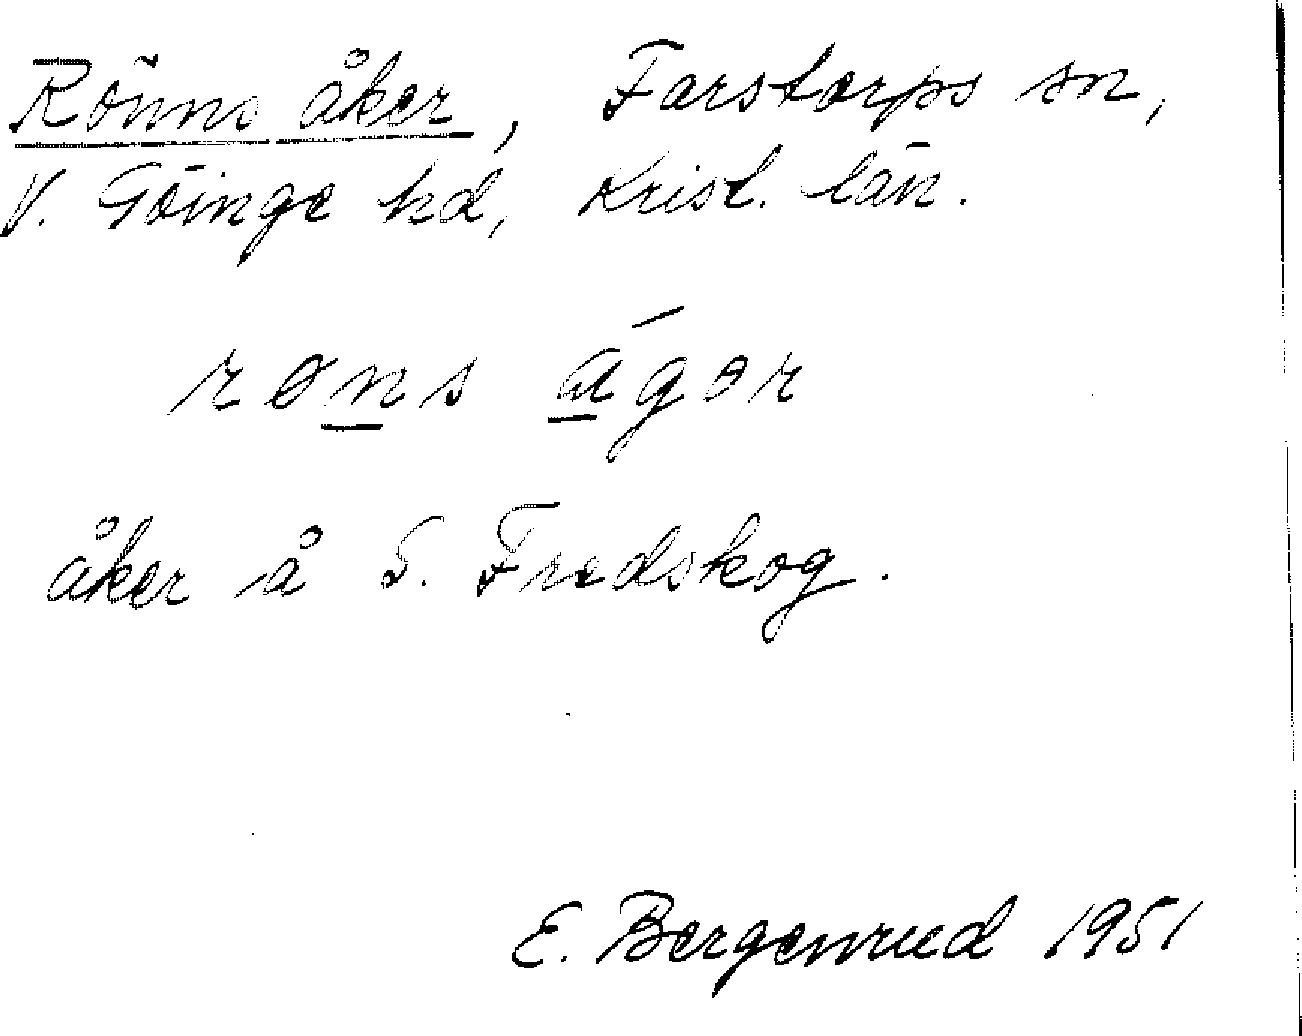 Rönns åker, Farstorps sn,
V. Göinge hd, Krist. län.
røns ágər
åker å S. Fredskog.
E. Bergenrud 1951